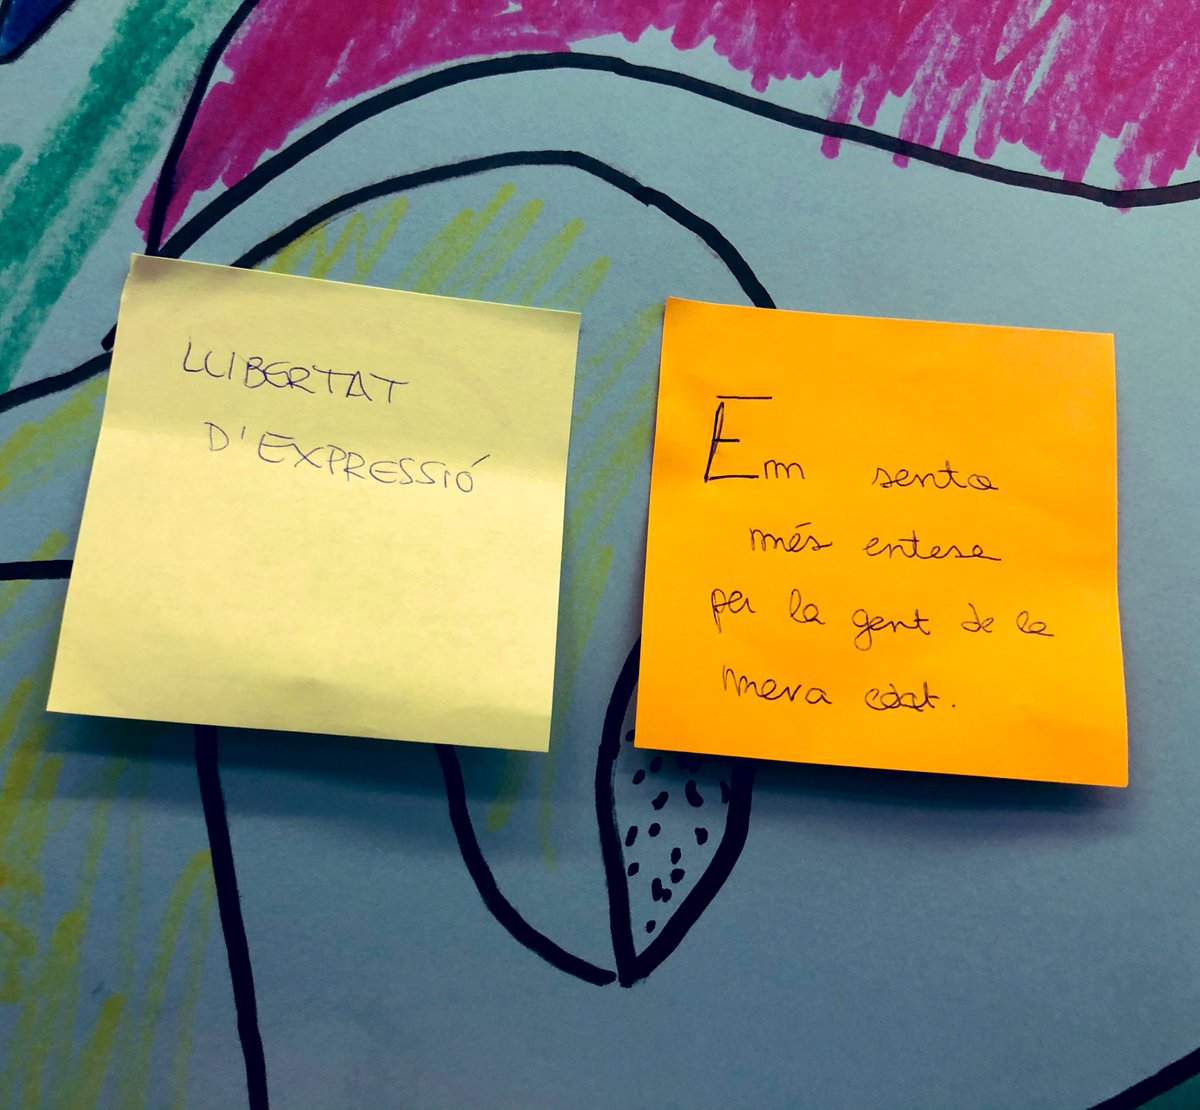 LLIBERTAT
D'EXPRESSIÓ
Em sento
més entesa
per la gent de la
meva edat.